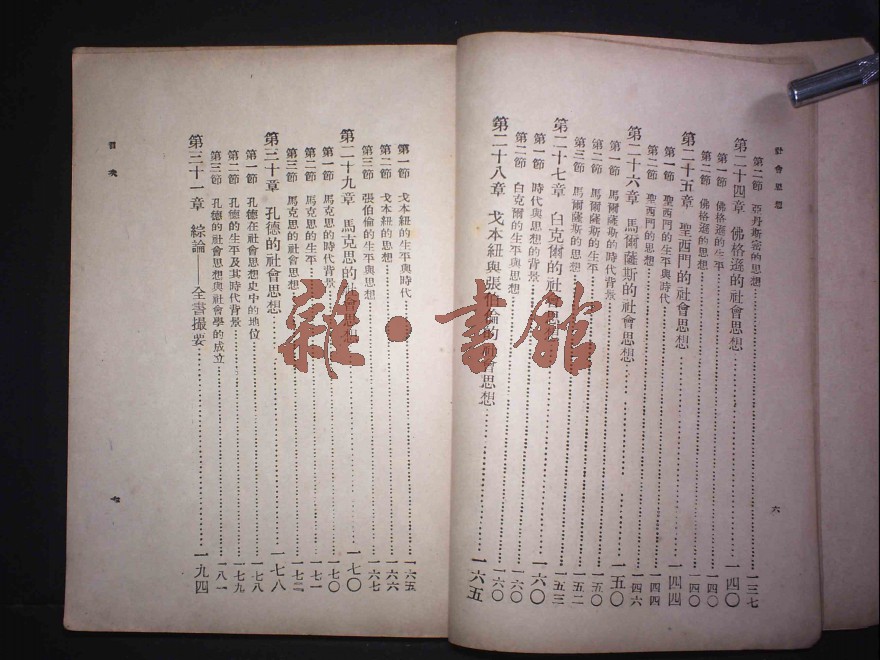 社會思想
第二節 亞丹斯密的思想……一三七
第二十四章 佛格遜的社會思想……一四〇
第一節 佛格遜的生平……一四〇
第二節 佛格遜的思想……一四〇
第二十五章 聖西門的社會思想……一四四
第一節 聖西門的生平與時代……一四四
第二節 聖西門的思想……一四六
第二十六章 馬爾薩斯的社會思想……一五〇
第一節 馬爾薩斯的時代背景……一五〇
第二節 馬爾薩斯的生平……一五〇
第三節 馬爾薩斯的思想……一五二
第二十七章 白克爾的社會思想……一五三
第一節 時代與思想的背景……一六〇
第二節 白克爾的生平與思想……一六〇
第二十八章 戈本紐與張伯倫的社會思想……一六五
六
第一節 戈本紐的生平與時代……一六五
第二節 戈本紐的思想……一六六
第三節 張伯倫的生平與思想……一六七
第二十九章 馬克思的社會思想……一七〇
第一節 馬克思的時代背景……一七〇
第二節 馬克思的生平……一七一
第三節 馬克思的社會思想……一七三
第三十章 孔德的社會思想……一七八
第一節 孔德在社會思想史中的地位……一七八
第二節 孔德的生平及其時代背景……一七九
第三節 孔德的社會思想與社會學的成立……一八一
第三十一章 綜論——全書撮要……一九四
目次
七
雜·書館